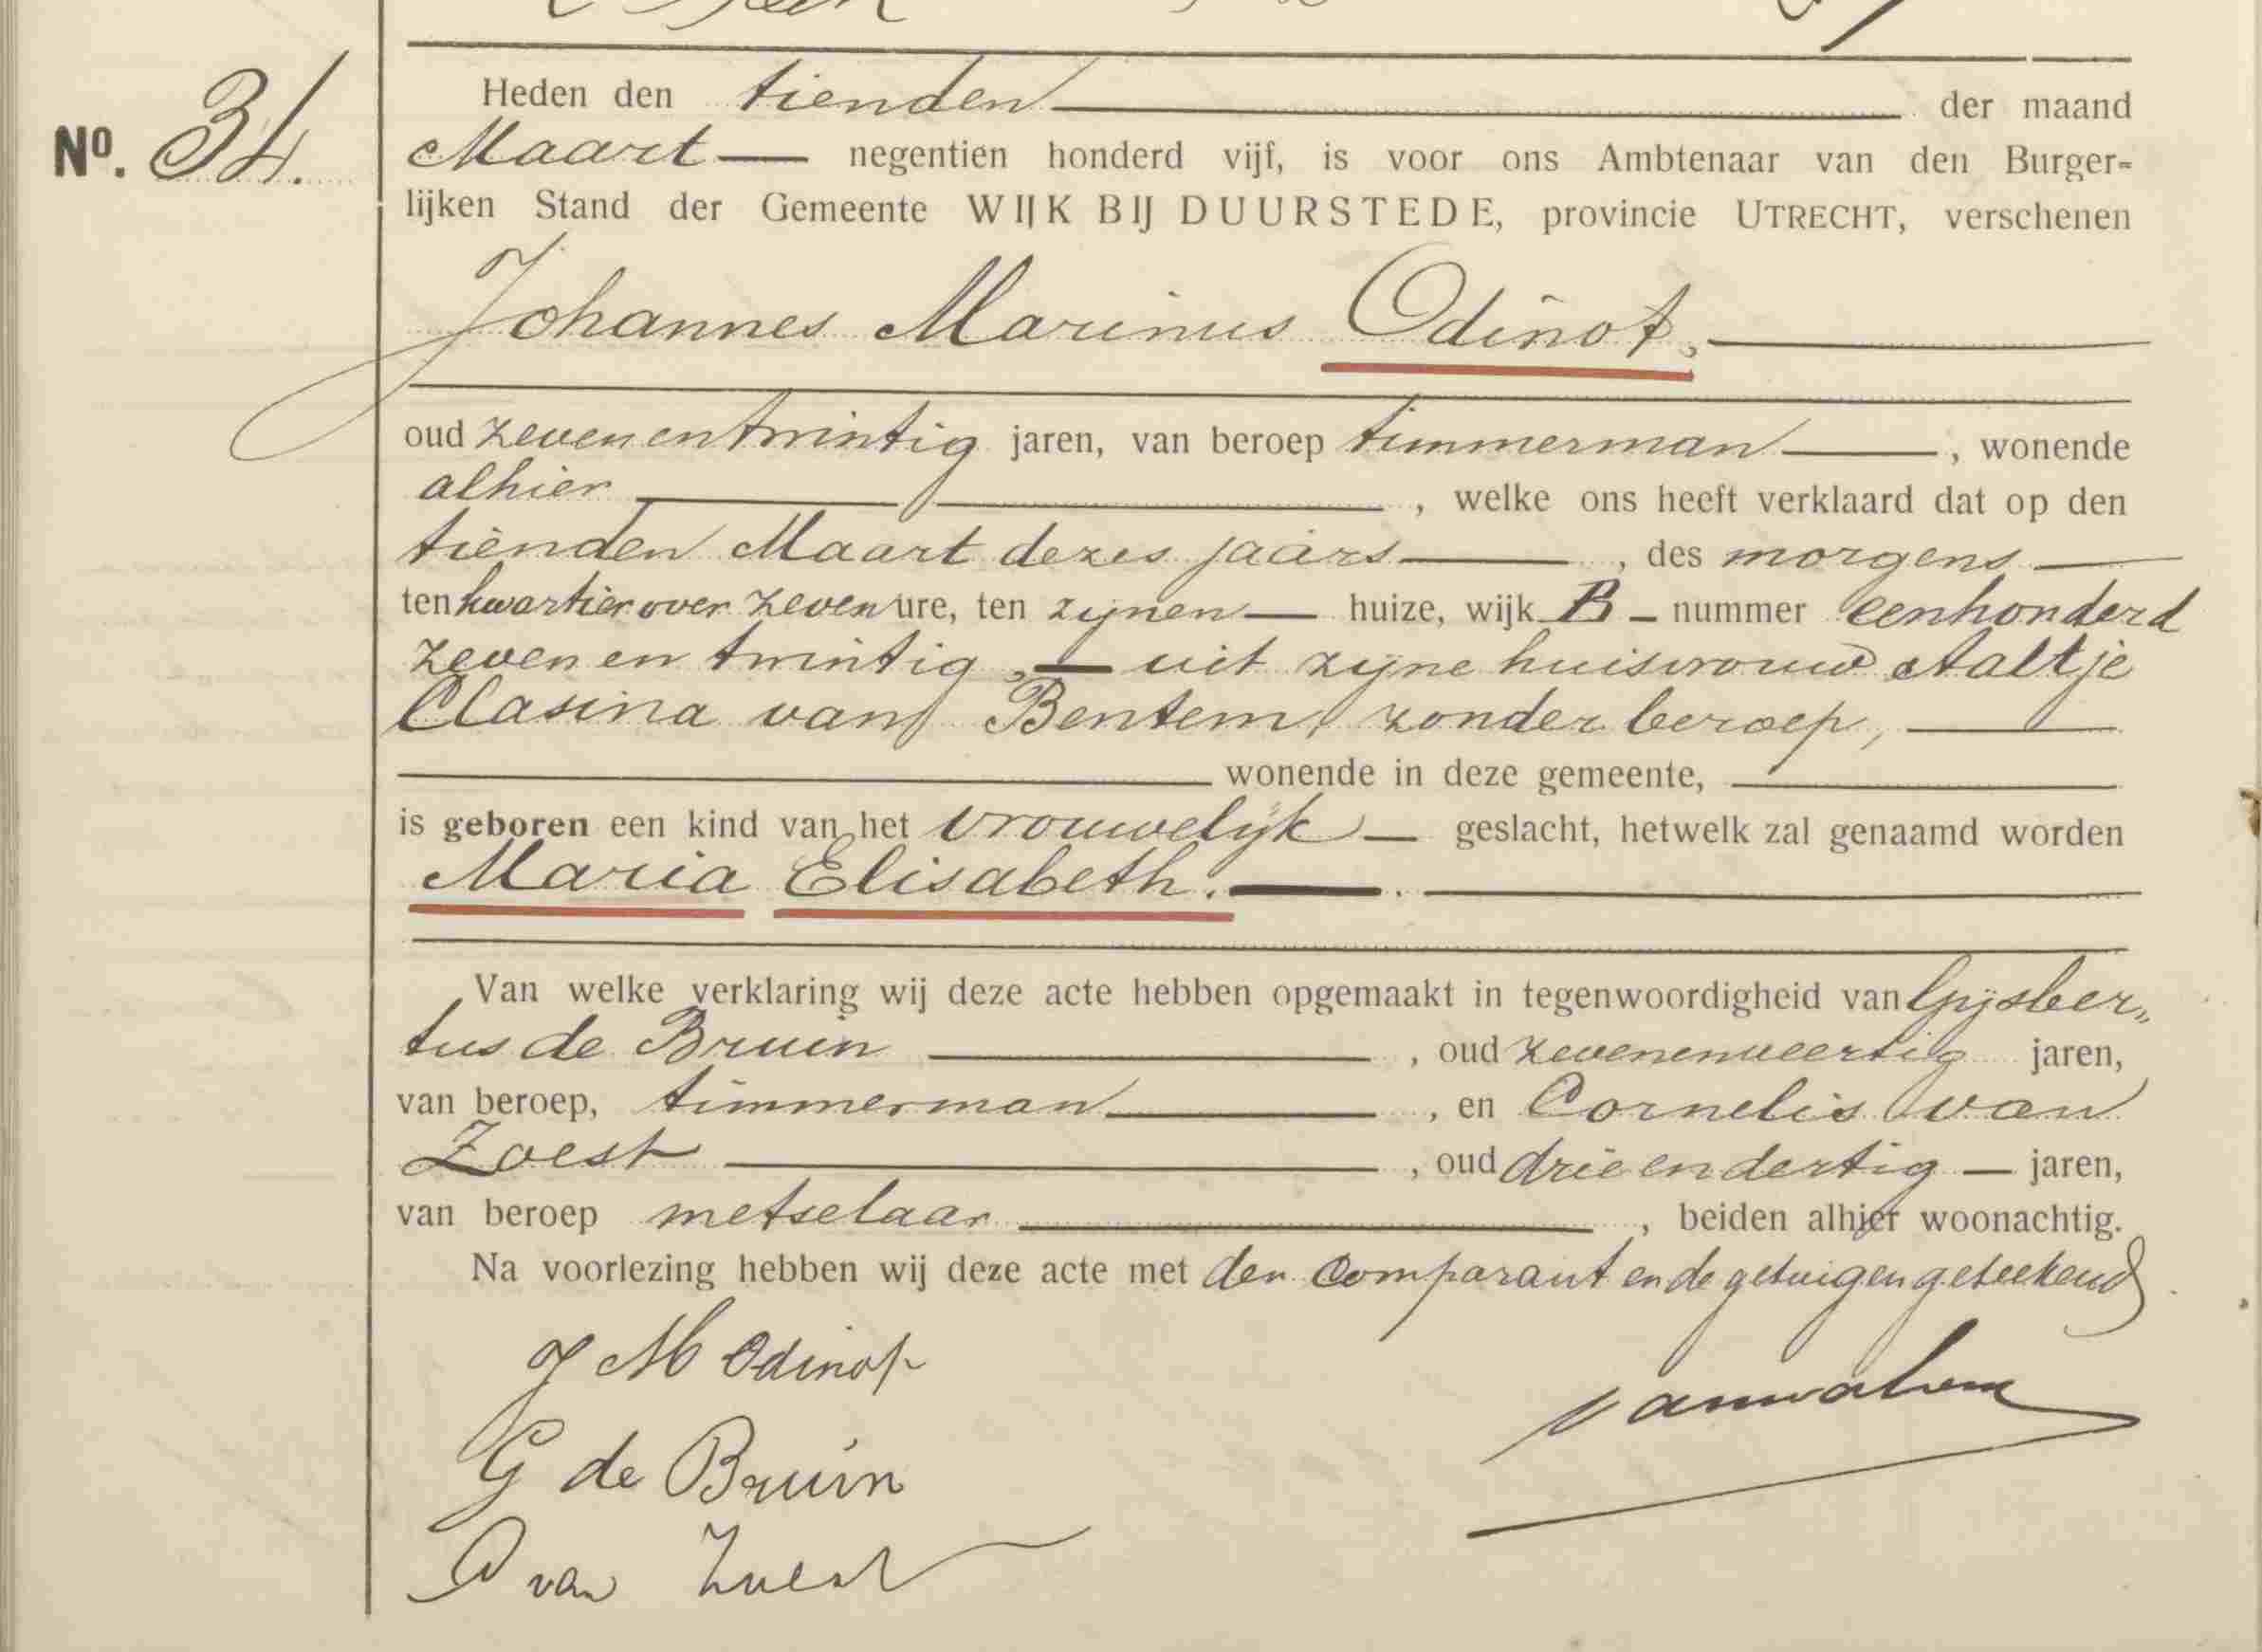 Nº. 34.
Heden den tienden der maand
Maart negentien honderd vijf, is voor ons Ambtenaar van den Burger=
lijken Stand der Gemeente WIJK BIJ DUURSTEDE, provincie UTRECHT, verschenen
Johannes Marinus Odinot,
oud zeven en twintig jaren, van beroep timmerman, wonende
alhier, welke ons heeft verklaard dat op den
tienden Maart dezes jaars, des morgens
ten kwartier over zeven ure, ten zijnen huize, wijk B nummer eenhonderd
zeven en twintig, uit zijne huisvrouw Aaltje
Clasina van Bentem, zonder beroep,
wonende in deze gemeente,
is geboren een kind van het vrouwelijk geslacht, hetwelk zal genaamd worden
Maria Elisabeth.
Van welke verklaring wij deze acte hebben opgemaakt in tegenwoordigheid van Gijsber„
tus de Bruin, oud zevenenveertig jaren,
van beroep, timmerman, en Cornelis van
Zoest, oud drie en dertig jaren,
van beroep metselaar, beiden alhier woonachtig.
Na voorlezing hebben wij deze acte met den Comparant en de getuigen geteekend
J M Odinot
G de Bruin
C van Zoest